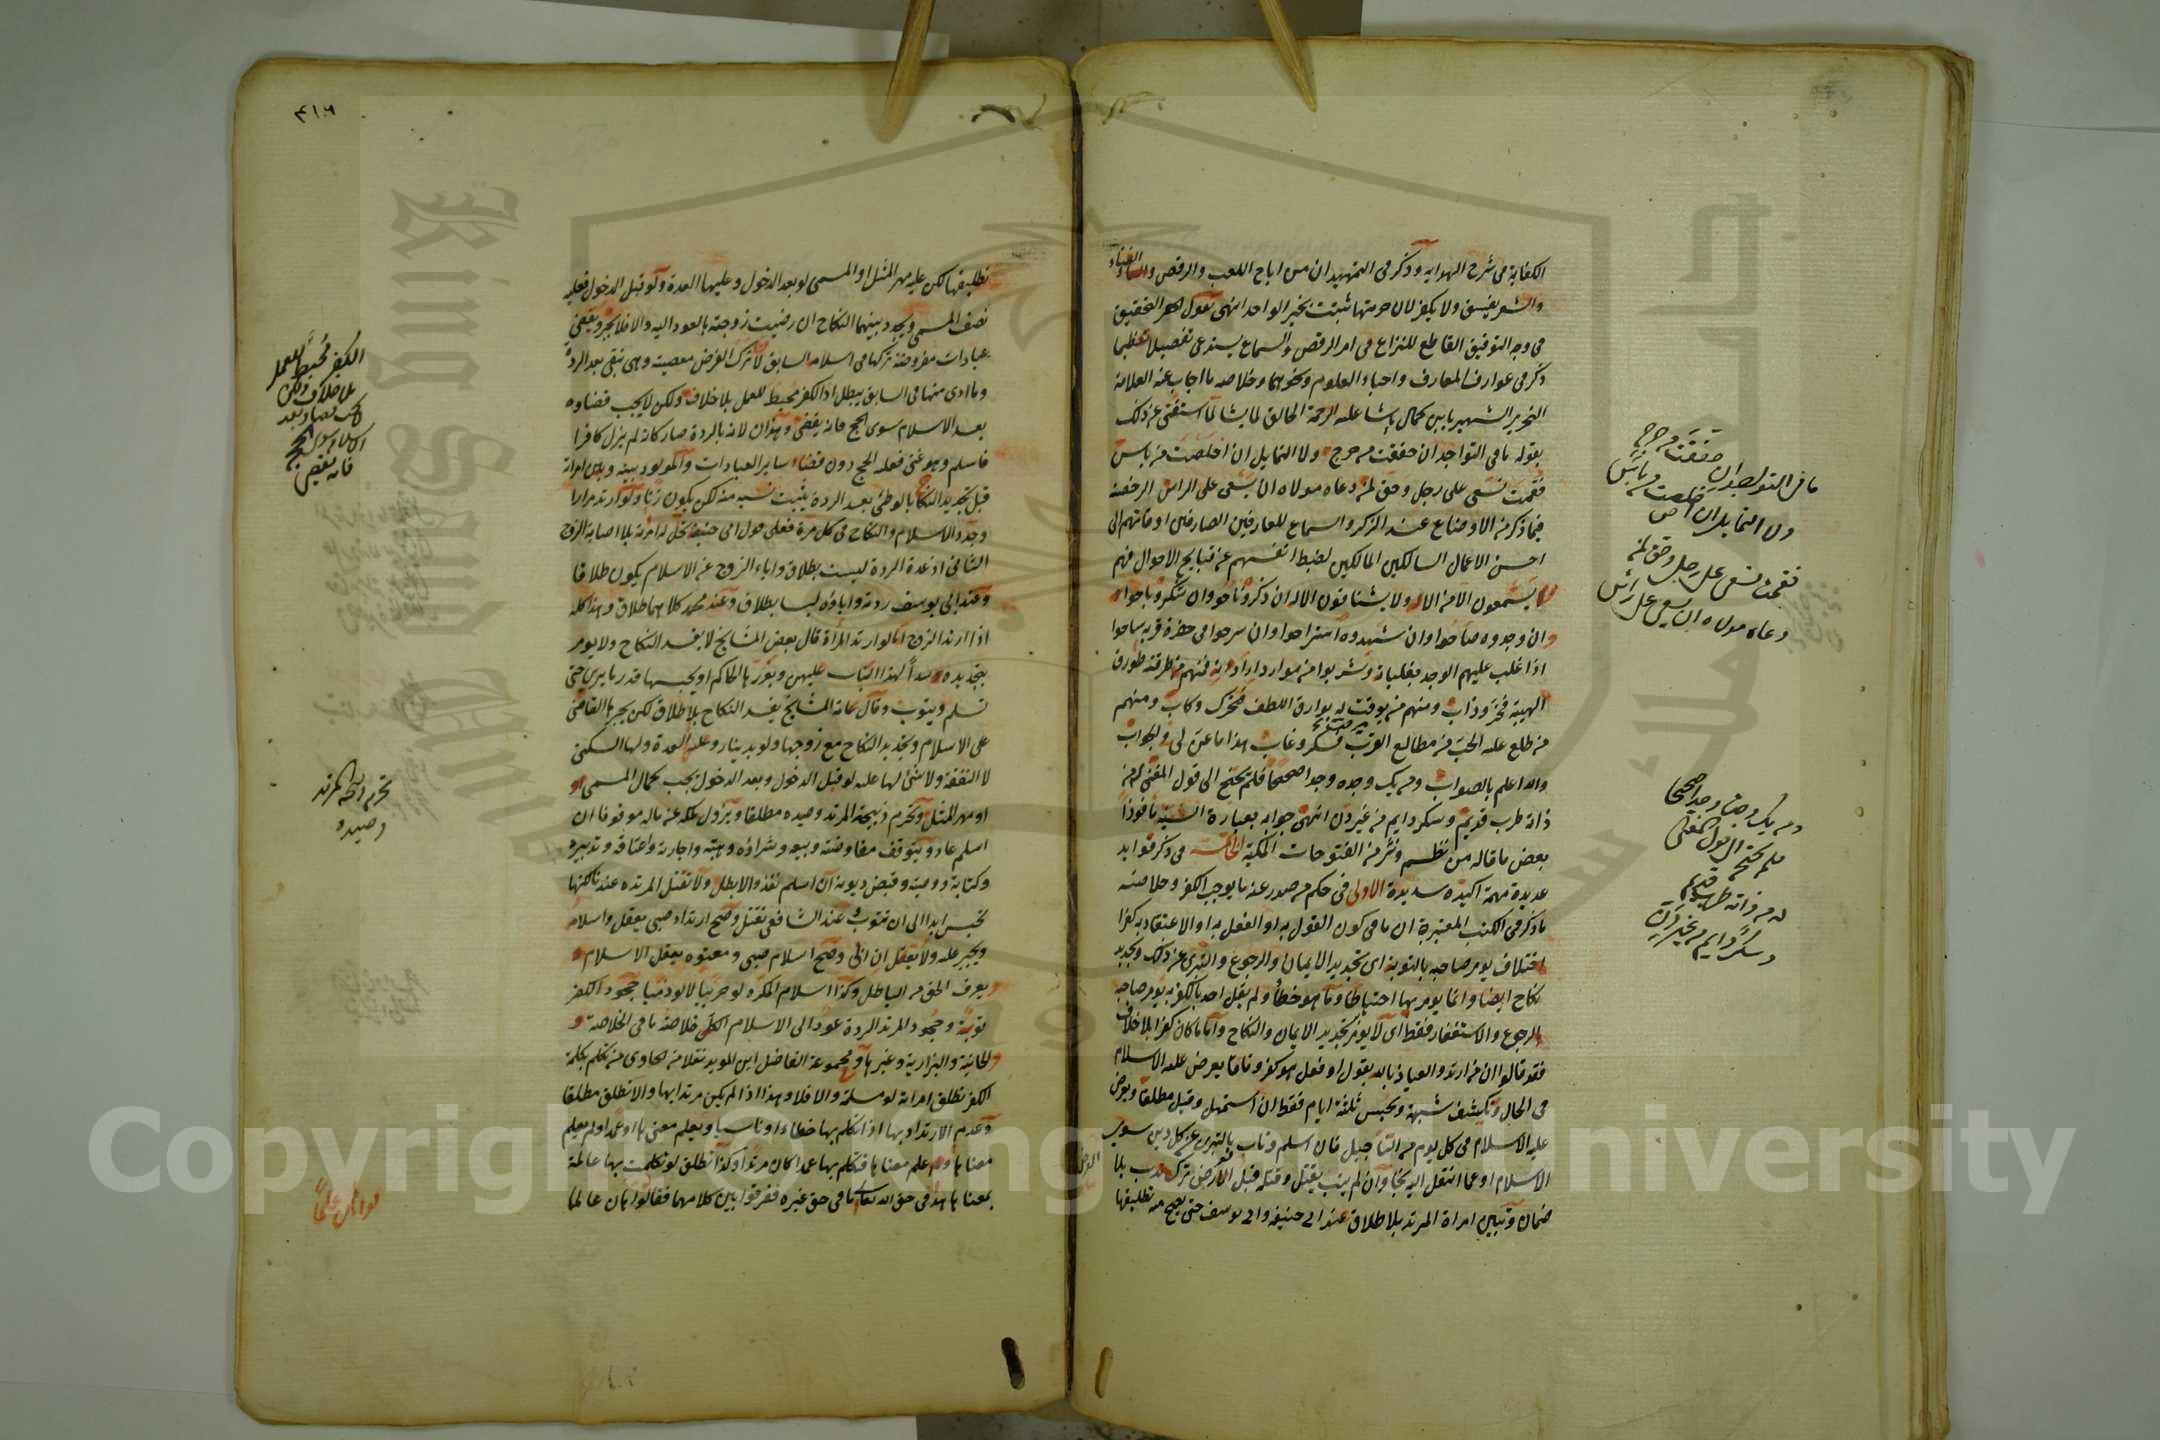 الكفاية في شرح الهداية وذكر في التمهيد ان من اباح اللعب والرقص والغناء
والشعر يفسق ولا يكفر لان حرمتها ثبتت بخبر الواحد انتهى نقول اهر التحقيق
في وجه التوفيق القاطع للنزاع في امر الرقص والسماع يستدعي تفصيلا عظيما
ذكر في عوارف المعارف واحياء العلوم ونحوهما وخلاصه ما اجاب عنه العلامة
النحرير الشهير بابن كمال پاشا عليه الرحمة الخالق لما يشا لما استفتى عن ذلك
بقوله ما في التواجد ان حققت من حرج ولا التمايل ان اخلصت من باس
فقمت تسعى على رجل وحق لمن دعاه مولاه ان يسعى على الراس الرخصة
فيما ذكر من الاوضاع عند الذكر والسماع للعارفين الصارفين اوقاتهم الى
احسن الاعمال السالكين المالكين لضبط انفسهم عن قبايح الاحوال فهم
لا يستمعون الا من الاله ولا يشتاقون الا له ان ذكروه ناحوا وان شكروه باحوا
وان وجدوه صاحوا وان شهدوه استراحوا وان سرحوا في حضرة قربه ساحوا
اذا غلب عليهم الوجد بغلباته وشربوا من موارد ارادته فمنهم من طرقته طوارق
الهيبة فخر وذاب ومنهم من برقت له بوارق اللطف فتحرك وكاب ومنهم
من طلع عليه الحب من مطالع القرب فسكر وغاب هذا ما عن لي في الجواب
والله اعلم بالصواب ومن يك وجده وجدا صحيحا فلم يحتج الى قول المغني له من
ذاته طرب قديم وسكر دايم من غير دن انتهى جوابه بعبارة السنية ماخوذا
بعض ما قاله من نظم ونثر من الفتوحات المكية الخاتمة في ذكر فوايد
عديدة مهمة اكيدة سديدة الاولى في حكم من صدر عنه ما يوجب الكفر وخلاصته
ما ذكر في الكتب المعتبرة ان ما في كون القول به او الفعل به او الاعتقاد به كفرا
اختلاف يومر صاحبه بالتوبة اي تجديد الايمان والرجوع والتبري عن ذلك وتجديد
نكاح ايضا وانما يومر بها احتياطا وما هو خطأ ولم يقل احد بالكفر به يومر صاحبه
بالرجوع والاستغفار فقط اي لا يومر بتجديد الايمان والنكاح واما ما كان كفرا بلا خلاف
فقد قالوا ان من ارتد والعياذ بالله بقول او فعل هو كفر وفاقا يعرض عليه الاسلام
في الحال وتكشف شبهته ويحبس ثلثة ايام فقط ان استمهل وقيل مطلقا ويعرض
عليه الاسلام في كل يوم من التاجيل فان اسلم وتاب بالتبري عن كل دين سوى
الاسلام او عما انتقل اليه نجا وان لم يتب يقتل وقتله قبل العرض ترك ندب بلا
ضمان وتبين امراة المرتد بلا طلاق عند ابي حنيفة وابي يوسف حتى يصح منه تطليقها
ما في التواجد ان حققت من حرج
ولا التمايل ان اخلصت من باس
فقمت تسعى على رجل وحق لمن
دعاه مولاه ان يسعى على راس
ومن يك وجده وجدا صحيحا
فلم يحتج الى قول المغني
له من ذاته طرب قديم
وسكر دايم من غير دن
٤١٦
تطليقها لكن عليه مهر المثل او المسمى لو بعد الدخول وعليها العدة ولو قبل الدخول فعليه
نصف المسمى ويجدد بينهما النكاح ان رضيت زوجته بالعود اليه والا فلا تجبر ويقضي
عبادات مفروضة تركها في اسلامه السابق لان ترك الفرض معصية وهي تبقى بعد الردة
وما ادى منها في السابق يبطل اذ الكفر محبط للعمل بلا خلاف ولكن لا يجب قضاوه
بعد الاسلام سوى الحج فانه يقضي وهوان لانه بالردة صار كانه لم يزل كافرا
فاسلم وهو غني فعليه الحج دون قضاء ساير العبادات والمولود بينه وبين امراته
قبل تجديد النكاح بالوطئ بعد الردة يثبت نسبه منه لكن يكون زنا ولو ارتد مرارا
وجدد الاسلام والنكاح في كل مرة فعلى قول ابي حنيفة تحل له امراته بلا اصابة الزوج
الثاني اذ عنده الردة ليست بطلاق واباء الزوج عن الاسلام يكون طلاقا
وعند ابي يوسف ردته واباؤه ليسا بطلاق وعند محمد كلاهما طلاق وهذا كله
اذا ارتد الزوج اما لو ارتد المراة قال بعض المشايخ لا يفسد النكاح ولا يومر
بتجديده سدا لهذا الباب عليهن ويعزرها الحاكم او يحبسها قدر ما يرى حتى
تسلم ويتوب وقال عامة المشايخ يفسد النكاح بلا طلاق لكن يجبرها القاضي
على الاسلام وتجديد النكاح مع زوجها ولو بدينار وعليها العدة ولها السكنى
لا النفقة ولا شئ لها عليه لو قبل الدخول وبعد الدخول يجب كمال المسمى
او مهر المثل وتحرم ذبيحة المرتد وصيده مطلقا ويزول ملكه عن ماله موقوفا ان
اسلم عاد ويتوقف مفاوضته وبيعه وشراؤه وهبته واجارته واعتاقه وتدبيره
وكتابته ووصيته وقبض ديونه ان اسلم نفذ والا بطل ولا تقتل المرتدة عندنا لكنها
تحبس ابدا الى ان تتوب وعند الشافعي تقتل وصح ارتداد صبي يعقل واسلامه
ويجبر عليه ولا يقتل ان ابى وصح اسلام صبي ومعتوه يعقل الاسلام
ويعرف الحق من الباطل وكذا اسلام المكره لو حربيا لا لو ذميا جحود الكفر
توبة وجحود المرتد الردة عود الى الاسلام الكل خلاصة ما في الخلاصة و
الخانية والبزازية وغيرها وفي مجموعة الفاضل ابن المويد نقلا من الحاوي من تكلم بكلمة
الكفر تطلق امراته لو مسلمة والا فلا وهذا اذا لم يكن مرتدا بها والا تطلق مطلقا
وعدم الارتداد بها اذا تكلم بها خطاء او ناسيا ويعلم معنى ها او عمدا ولم يعلم
معناها ومن علم معناها فتكلم بها عمدا كان مرتدا وكذا تطلق لو تكلمت بها عالمة
بمعناها هذا في حق الله تعالى اما في حق غيره ففرقوا بين كلامهما فقالوا ان عالما
الكفر محبط للعمل
بلا خلاف ولكن
لا يجب قضاوه بعد
الاسلام سوى الحج
فانه يقضي
تحرم ذبيحة المرتد
وصيده
Copyright © King Saud University
King Saud University